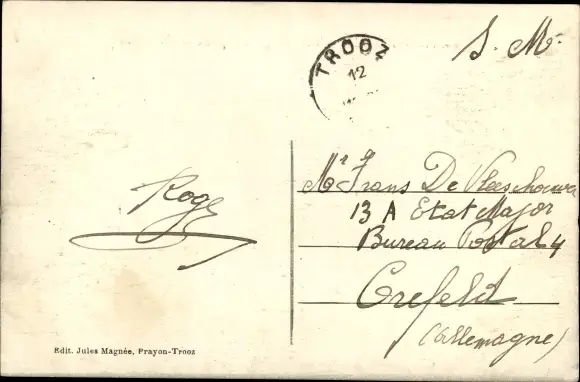 S. M.
TROOZ
12
Mr Frans De Vleeschouwer
13 A Etat Major
Bureau Postal 4
Crefeld
(Allemagne)
Roger
Edit. Jules Magnée, Prayon-Trooz